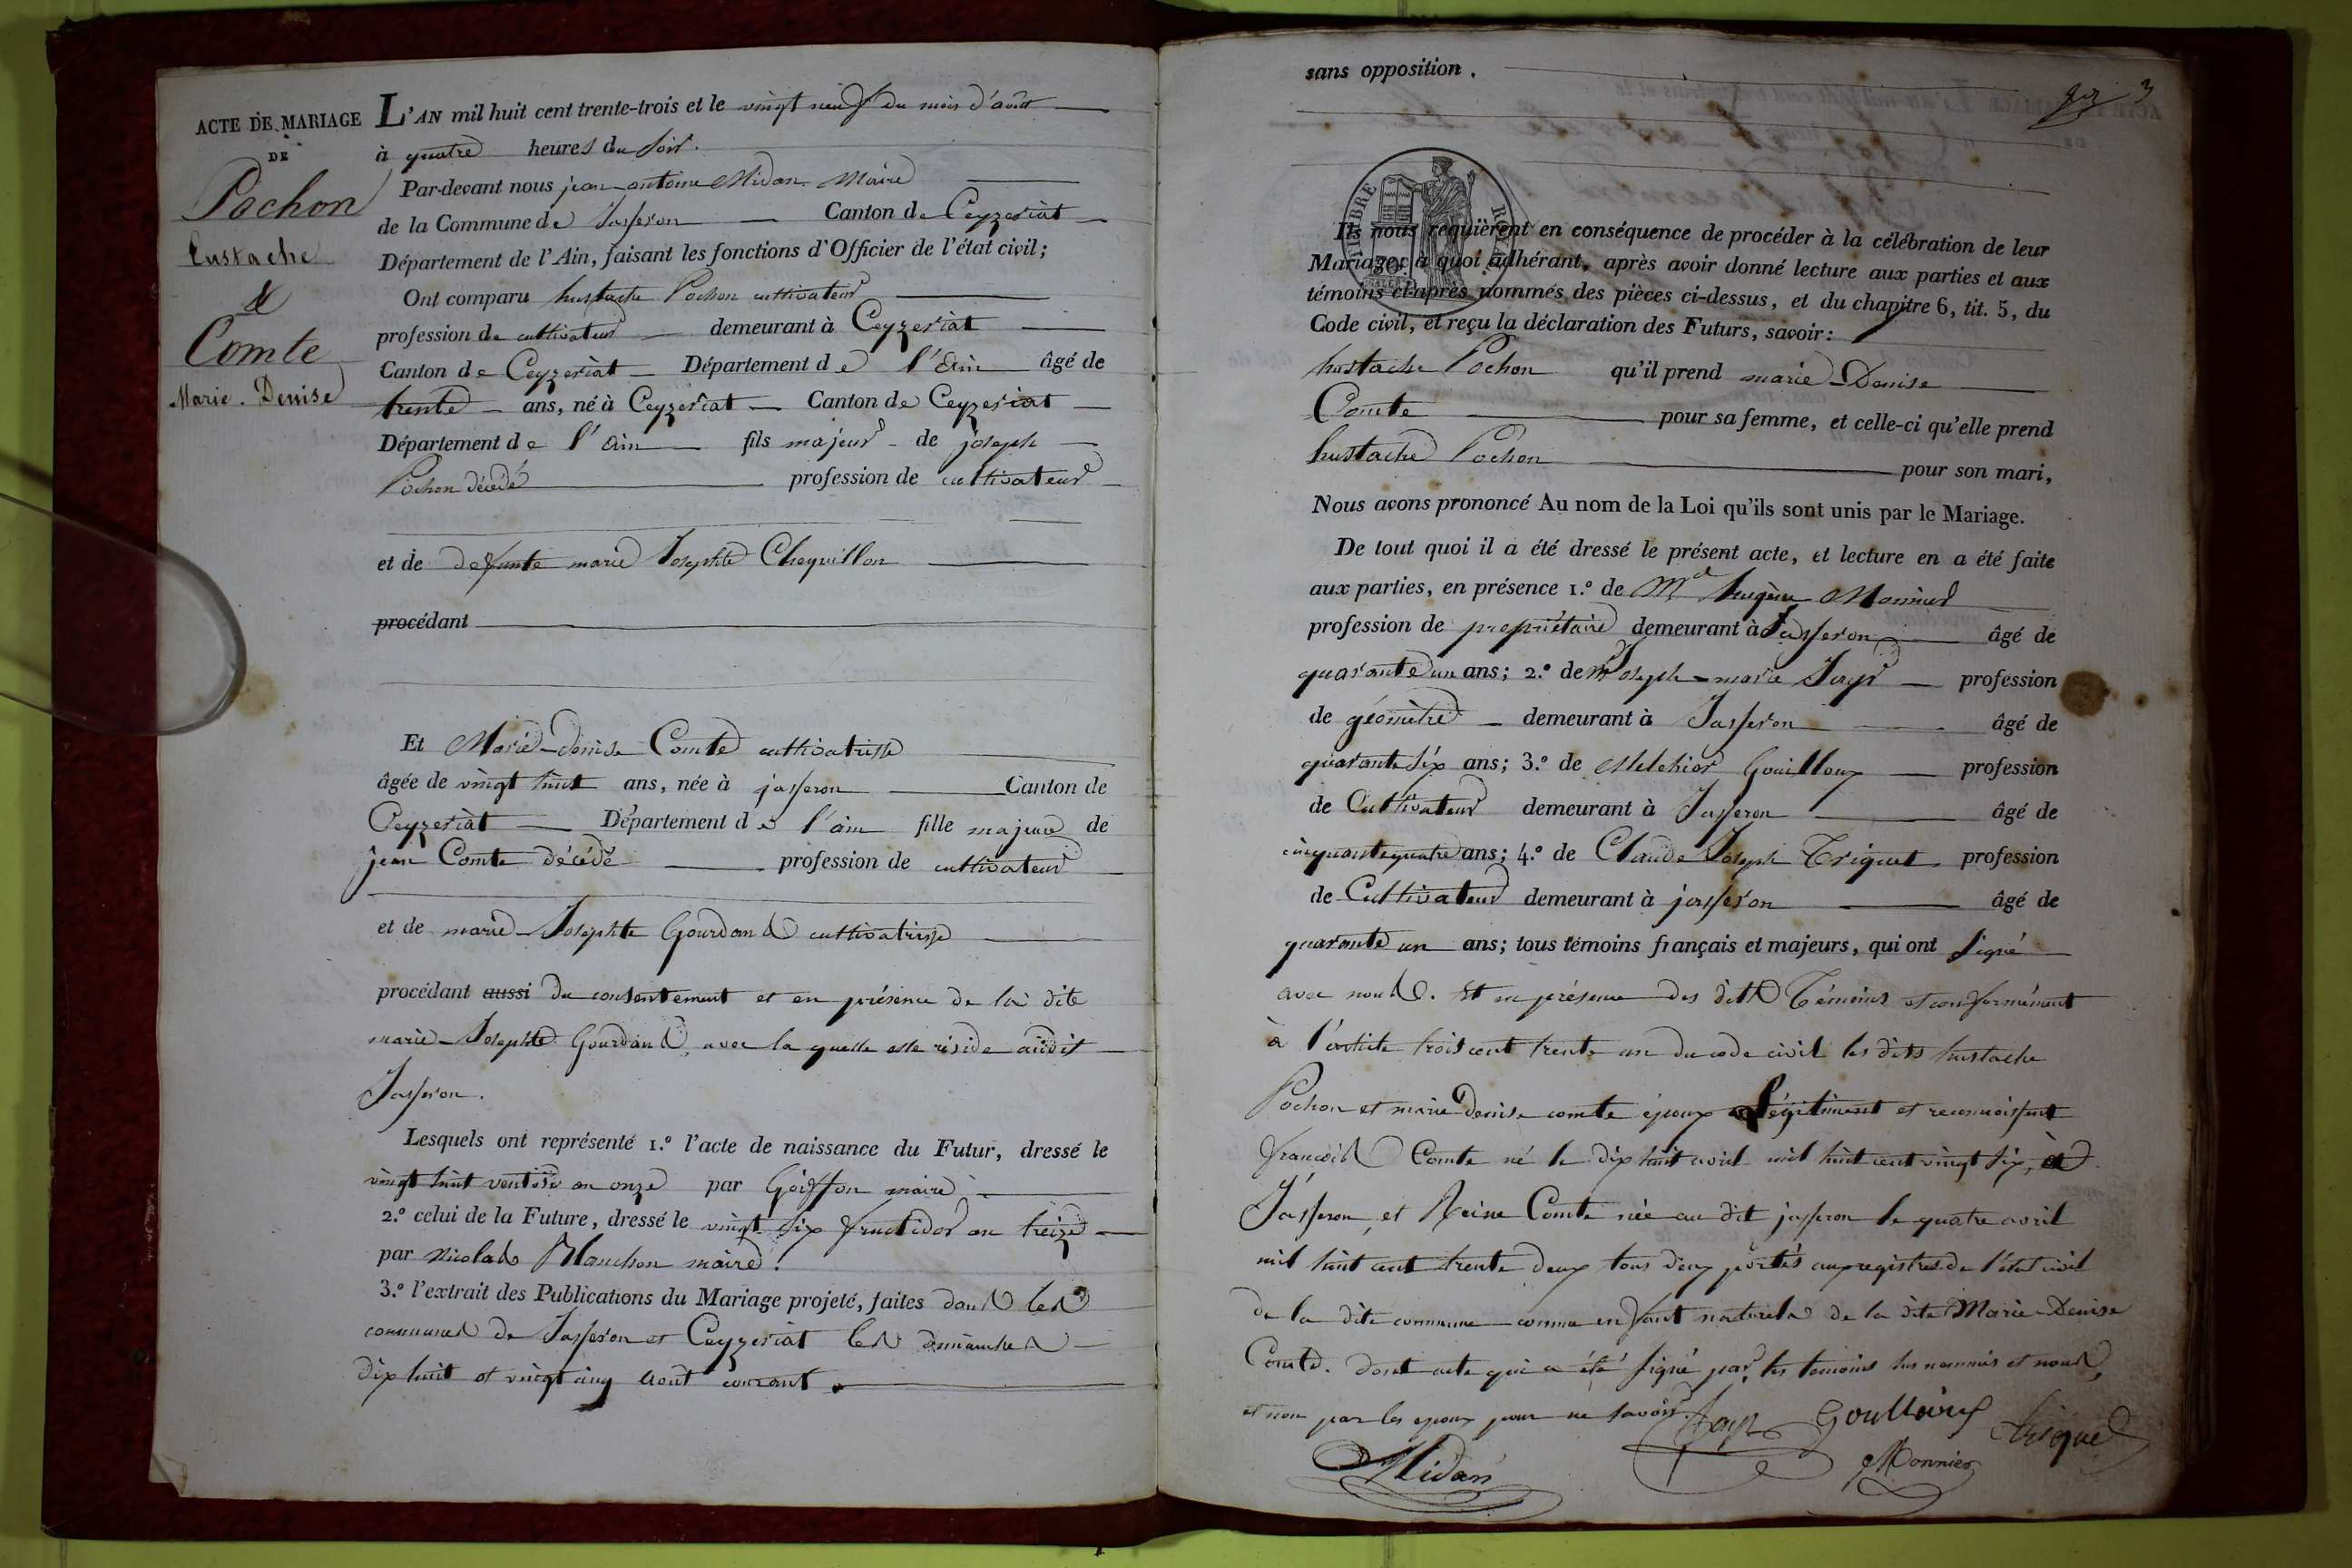 ACTE DE MARIAGE
DE
Pochon
Eustache
&
Comte
Marie-Denise
L'AN mil huit cent trente-trois et le vingt neuf du mois d'août
à quatre heures du soir.
Par-devant nous jean antoine Midan Maire
de la Commune de Jasseron Canton de Ceyzeriat
Département de l'Ain, faisant les fonctions d'Officier de l'état civil;
Ont comparu hustache Pochon cultivateur
profession de cultivateur demeurant à Ceyzeriat
Canton de Ceyzeriat Département de l'Ain âgé de
trente ans, né à Ceyzeriat Canton de Ceyzeriat
Département de l'Ain fils majeur de joseph
Pochon décédé profession de cultivateur
et de defunte marie Josephte Chequillon
procédant
Et Marie-denise Comte cultivatrisse
âgée de vingt huit ans, née à jasseron Canton de
Ceyzeriat Département de l'ain fille majeure de
jean Comte décédé profession de cultivateur
et de marie Josephte Gourdand cultivatrisse
procédant aussi du consentement et en présence de la dite
marie-Josephte Gourdand, avec la quelle elle réside audit
Jasseron.
Lesquels ont représenté 1.º l'acte de naissance du Futur, dressé le
vingt huit ventose an onze par Goiffon maire
2.º celui de la Future, dressé le vingt six fructidor an treize
par Nicolas Blanchon maire.
3.º l'extrait des Publications du Mariage projeté, faites dans les
communes de Jasseron et Ceyzeriat les dimanches
dix huit et vingt cinq août courant
sans opposition.
3
TIMBRE ROYAL
Ils nous requièrent en conséquence de procéder à la célébration de leur
Mariage; à quoi adhérant, après avoir donné lecture aux parties et aux
témoins ci-après nommés des pièces ci-dessus, et du chapitre 6, tit. 5, du
Code civil, et reçu la déclaration des Futurs, savoir:
hustache Pochon qu'il prend marie-Denise
Comte pour sa femme, et celle-ci qu'elle prend
hustache Pochon pour son mari,
Nous avons prononcé Au nom de la Loi qu'ils sont unis par le Mariage.
De tout quoi il a été dressé le présent acte, et lecture en a été faite
aux parties, en présence 1.º de Mr hugène Monnier
profession de propriétaire demeurant à Jasseron âgé de
quarante un ans; 2.º de Mr Joseph-marie Jayr profession
de géomètre demeurant à Jasseron âgé de
quarante six ans; 3.º de Melchior Gouilloux profession
de Cultivateur demeurant à Jasseron âgé de
cinquante quatre ans; 4.º de Claude Joseph Triquet profession
de Cultivateur demeurant à jasseron âgé de
quarante un ans; tous témoins français et majeurs, qui ont signé
avec nous. Et en présence des dits Témoins et conformément
à l'article trois cent trente un du code civil les dits hustache
Pochon et marie Denise comte époux Légitiment et reconnoissent
françois Comte né le dix huit avril mil huit cent vingt six, à
Jasseron, et Reine Comte née au dit jasseron le quatre avril
mil huit cent trente deux tous deux portés aux registres de l'état civil
de la dite commune comme enfant naturels de la dite Marie-Denise
Comte. dont acte qui a été signé par les temoins sus nommés et nous,
et non par les epoux pour ne savoir. Jayr Goulloux triquet
Midan Monnier